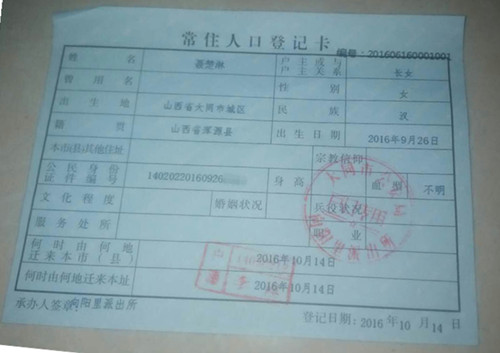 常住人口登记卡
编号:201606160001001
姓名 聂楚琳 户主或与户主关系 长女
曾用名 性别 女
出生地 山西省大同市城区 民族 汉
籍贯 山西省浑源县 出生日期 2016年9月26日
本市(县)其他住址 宗教信仰
公民身份证件编号 14020220160926 身高 血型 不明
文化程度 婚姻状况 兵役状况
服务处所 职业
何时由何地迁来本市(县) 2016年10月14日
何时由何地迁来本址 2016年10月14日
承办人签章:向阳里派出所 登记日期:2016年10月14日